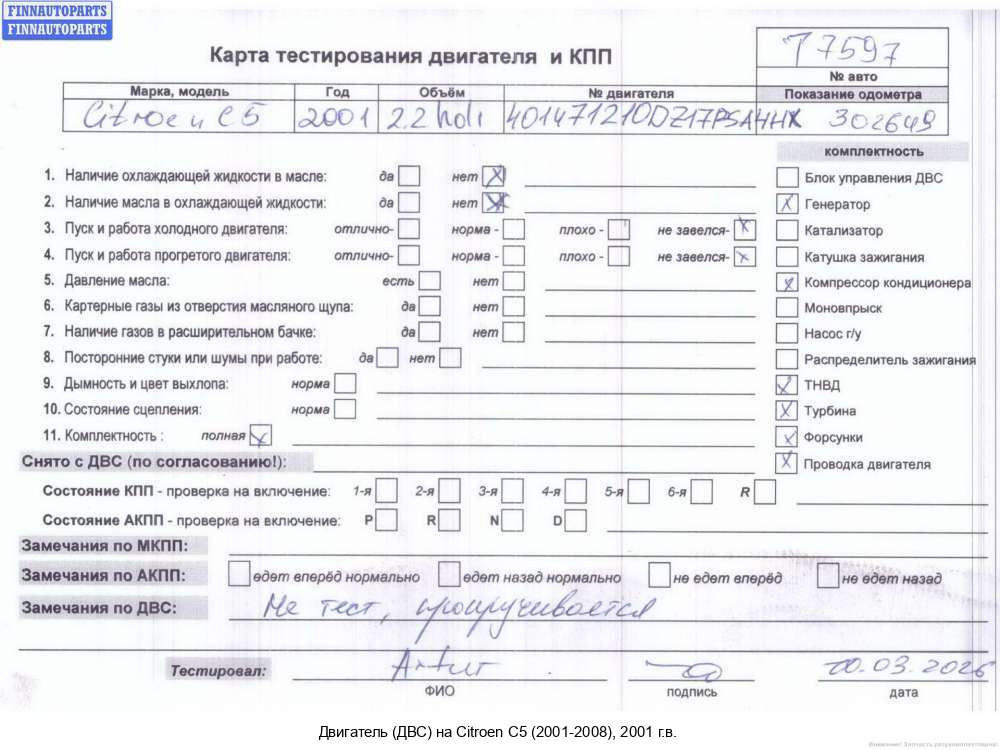 FINNAUTOPARTS
FINNAUTOPARTS
Карта тестирования двигателя и КПП
T7597
№ авто
Марка, модель Год Объём № двигателя Показание одометра
Citroen C5 2001 2.2 hdi 4HX 302649
комплектность
1. Наличие охлаждающей жидкости в масле: да нет X
Блок управления ДВС
2. Наличие масла в охлаждающей жидкости: да нет X
X Генератор
3. Пуск и работа холодного двигателя: отлично- норма - плохо - не завелся- X
Катализатор
4. Пуск и работа прогретого двигателя: отлично- норма - плохо - не завелся- X
Катушка зажигания
5. Давление масла: есть нет
X Компрессор кондиционера
6. Картерные газы из отверстия масляного щупа: да нет
Моновпрыск
7. Наличие газов в расширительном бачке: да нет
Насос г/у
8. Посторонние стуки или шумы при работе: да нет
Распределитель зажигания
9. Дымность и цвет выхлопа: норма
X ТНВД
10. Состояние сцепления: норма
X Турбина
11. Комплектность : полная X
X Форсунки
Снято с ДВС (по согласованию!):
X Проводка двигателя
Состояние КПП - проверка на включение: 1-я 2-я 3-я 4-я 5-я 6-я R
Состояние АКПП - проверка на включение: P R N D
Замечания по МКПП:
Замечания по АКПП: едет вперёд нормально едет назад нормально не едет вперёд не едет назад
Замечания по ДВС: Не тест, прокручивается
Тестировал: Artur .03.2026
ФИО подпись дата
Двигатель (ДВС) на Citroen C5 (2001-2008), 2001 г.в.